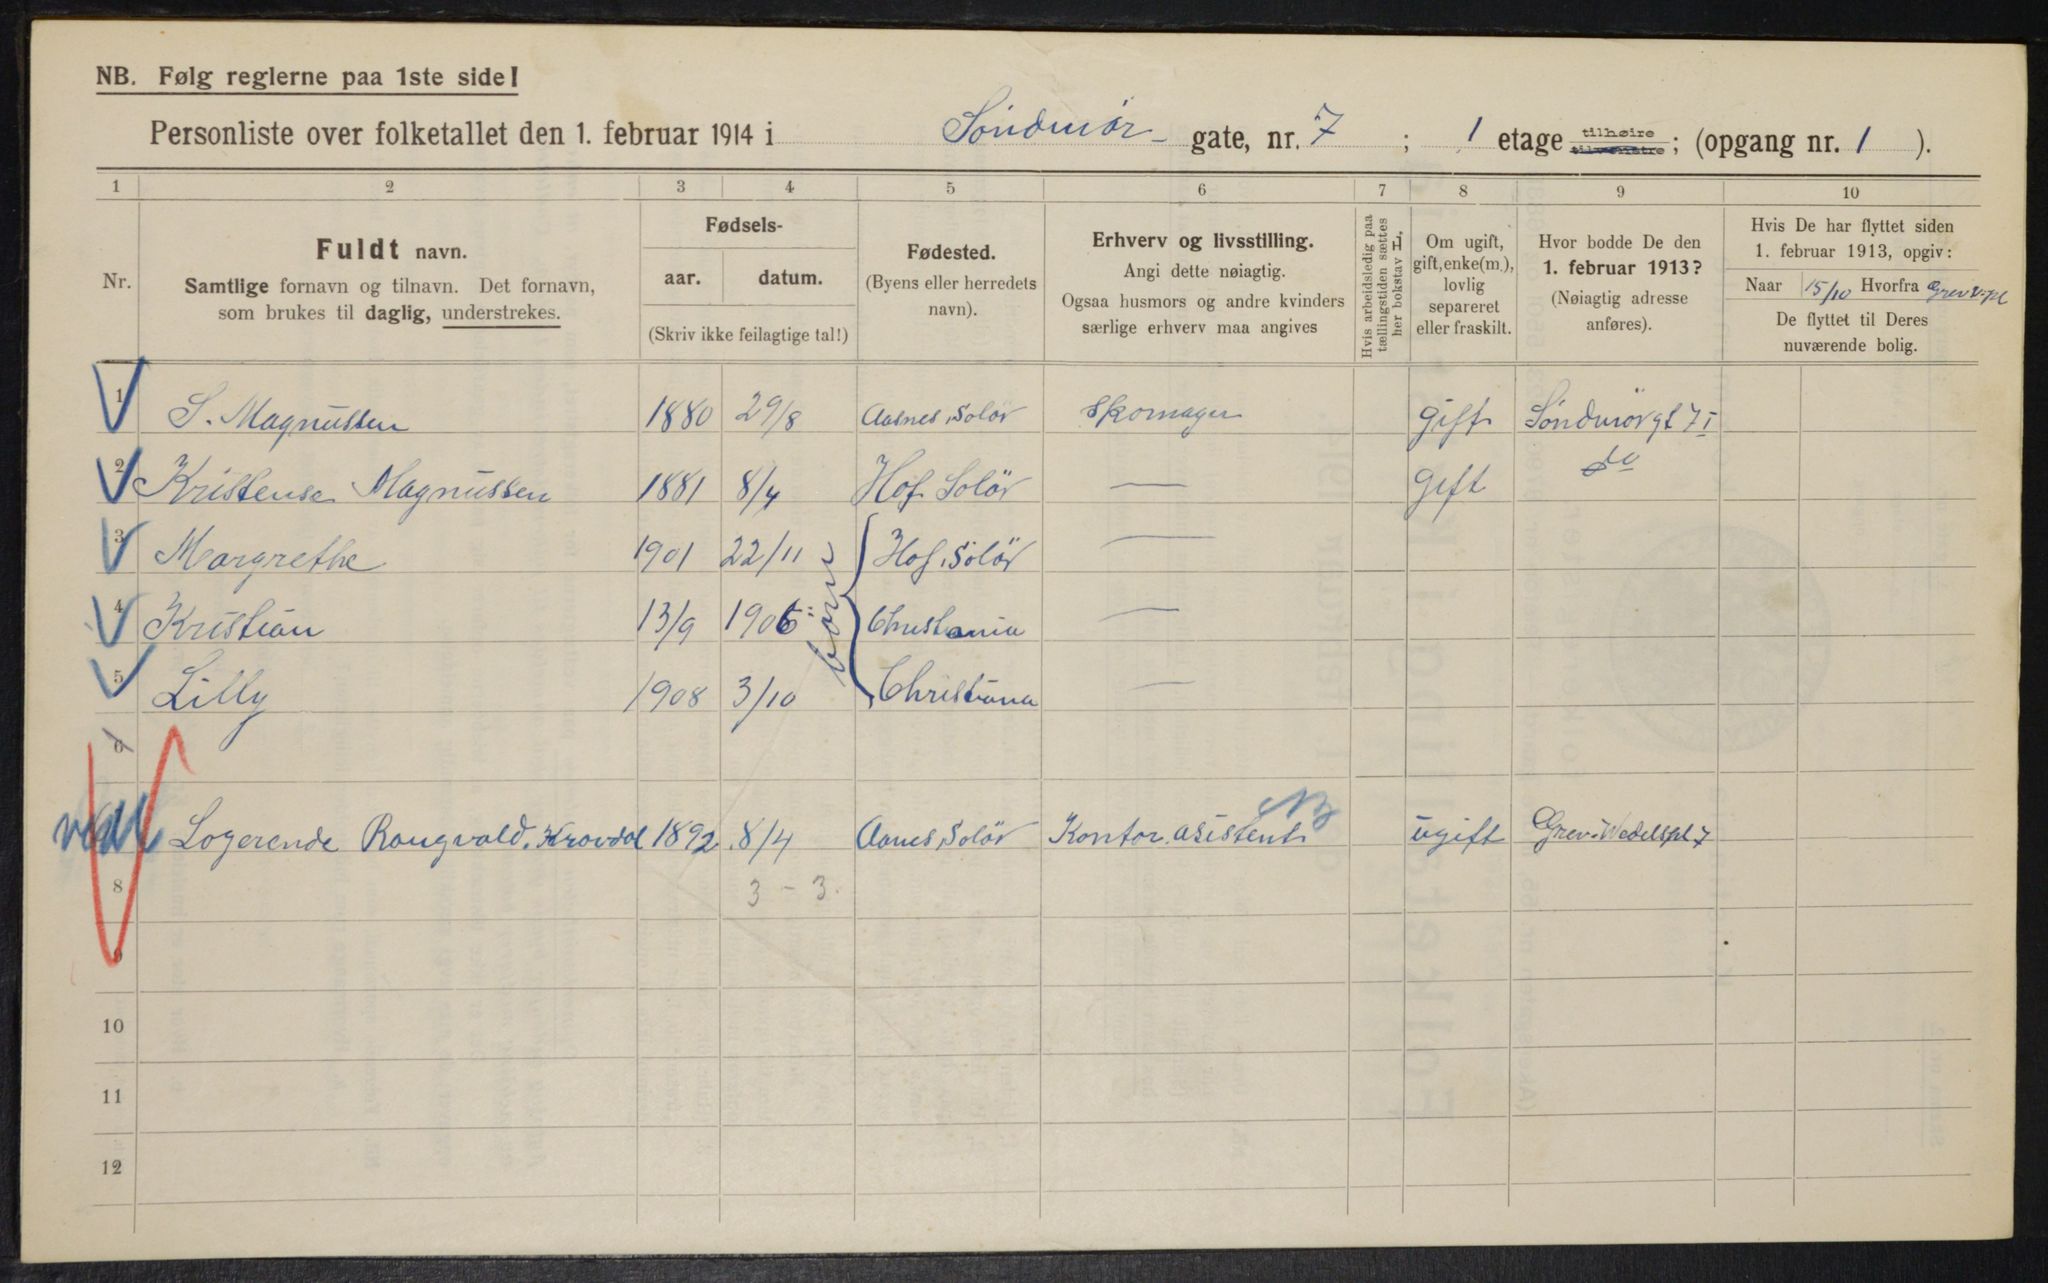 NB. Følg reglerne paa 1ste side!
Personliste over folketallet den 1. februar 1914 i Söndmör- gate, nr. 7 ; 1 etage tilhøire tilvenstre ; (opgang nr. 1 ).
1 2 3 4 5 6 7 8 9 10
Nr.
Fuldt navn.
Samtlige fornavn og tilnavn. Det fornavn,
som brukes til daglig, understrekes.
Fødsels-
aar. datum.
(Skriv ikke feilagtige tal!)
Fødested.
(Byens eller herredets
navn).
Erhverv og livsstilling.
Angi dette nøiagtig.
Ogsaa husmors og andre kvinders
særlige erhverv maa angives
Hvis arbeidsledig paa
tællingstiden sættes
her bokstav L.
Om ugift,
gift, enke(m.),
lovlig
separeret
eller fraskilt.
Hvor bodde De den
1. februar 1913?
(Nøiagtig adresse
anføres).
Hvis De har flyttet siden
1. februar 1913, opgiv:
Naar 15/10 Hvorfra Grev V. pl
De flyttet til Deres
nuværende bolig.
1 S. Magnussen 1880 29/8 Aasnes, Solör Skomager gift Söndmörgt 7 I
2 Kristense Magnussen 1881 8/4 Hof Solör — Gift do
3 Margrethe 1901 22/11 Hof, Solör —
4 Kristian 13/9 1906 Christania —
5 Lilly 1908 3/10 Christiana —
born
6
Logerende Rangvald. Kravdal 1892 8/4 Aanes, Solör Kontor asistent ugift Grev-Wedelspl 7
NB
8 3 - 3.
9
10
11
12